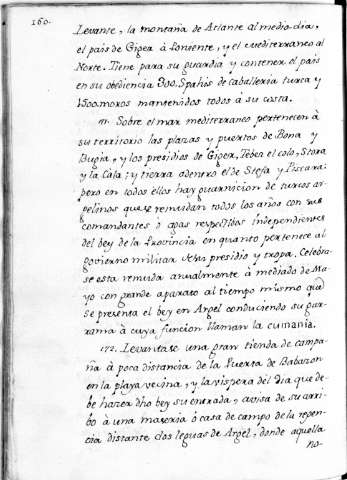 160.
Levante, la montaña de Atlante al medio dia,
el pais de Gigea à Poniente, y el mediterraneo al
Norte. Tiene para su guardia y contener el pais
en su obediencia 300. Spahis de caballeria turca y
1500 moros mantenidos todos à su costa.
Sobre el mar mediterraneo pertenecen à
su territorio las plazas y puertos de Bona y
Bugia, y los presidios de Giger, Tebez el colo, Stora
y la Cala; y tierra adentro el de Stefa y Piscara:
pero en todos ellos hay guarnicion de turcos ar-
gelinos que se remudan todos los años con sus
comandantes ò agas respectibos independientes
del bey de la Provincia en quanto pertenece al
govierno militar de su presidio y tropa. Celebra-
se esta remuda anualmente à mediado de Ma-
yo con grande aparato al tiempo mismo que
se presenta el bey en Argel conduciendo su gar-
rama à cuya funcion llaman la cumania.
172. Levantase una gran tienda de campa-
ña à poca distancia de la Puerta de Babazon
en la playa vecina, y la vispera del dia que de-
be hazer dho bey su entrada, avisa de su arri-
bo à una maseria ò casa de campo de la regen-
cia distante dos leguas de Argel, donde aquella
no-